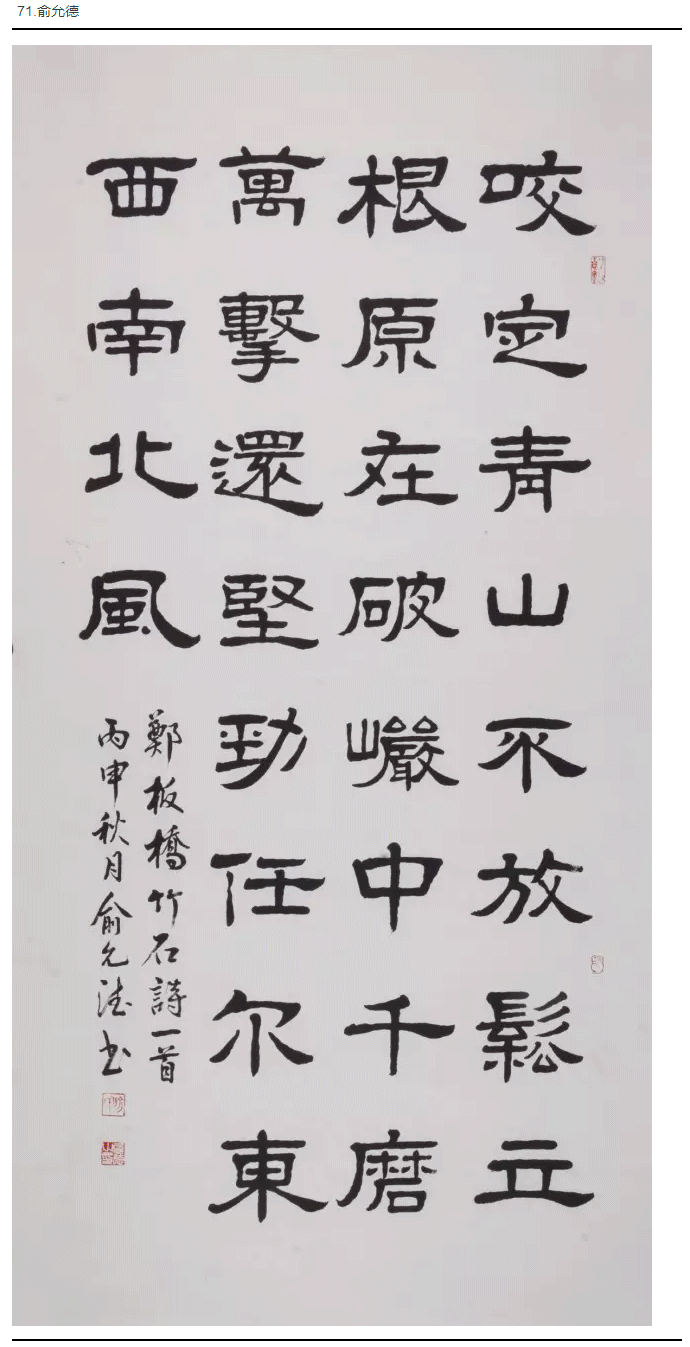 71.俞允德
咬定青山不放鬆立
根原在破巗中千磨
萬擊還堅勁任尔東
西南北風
鄭板橋竹石詩一首
丙申秋月俞允德书